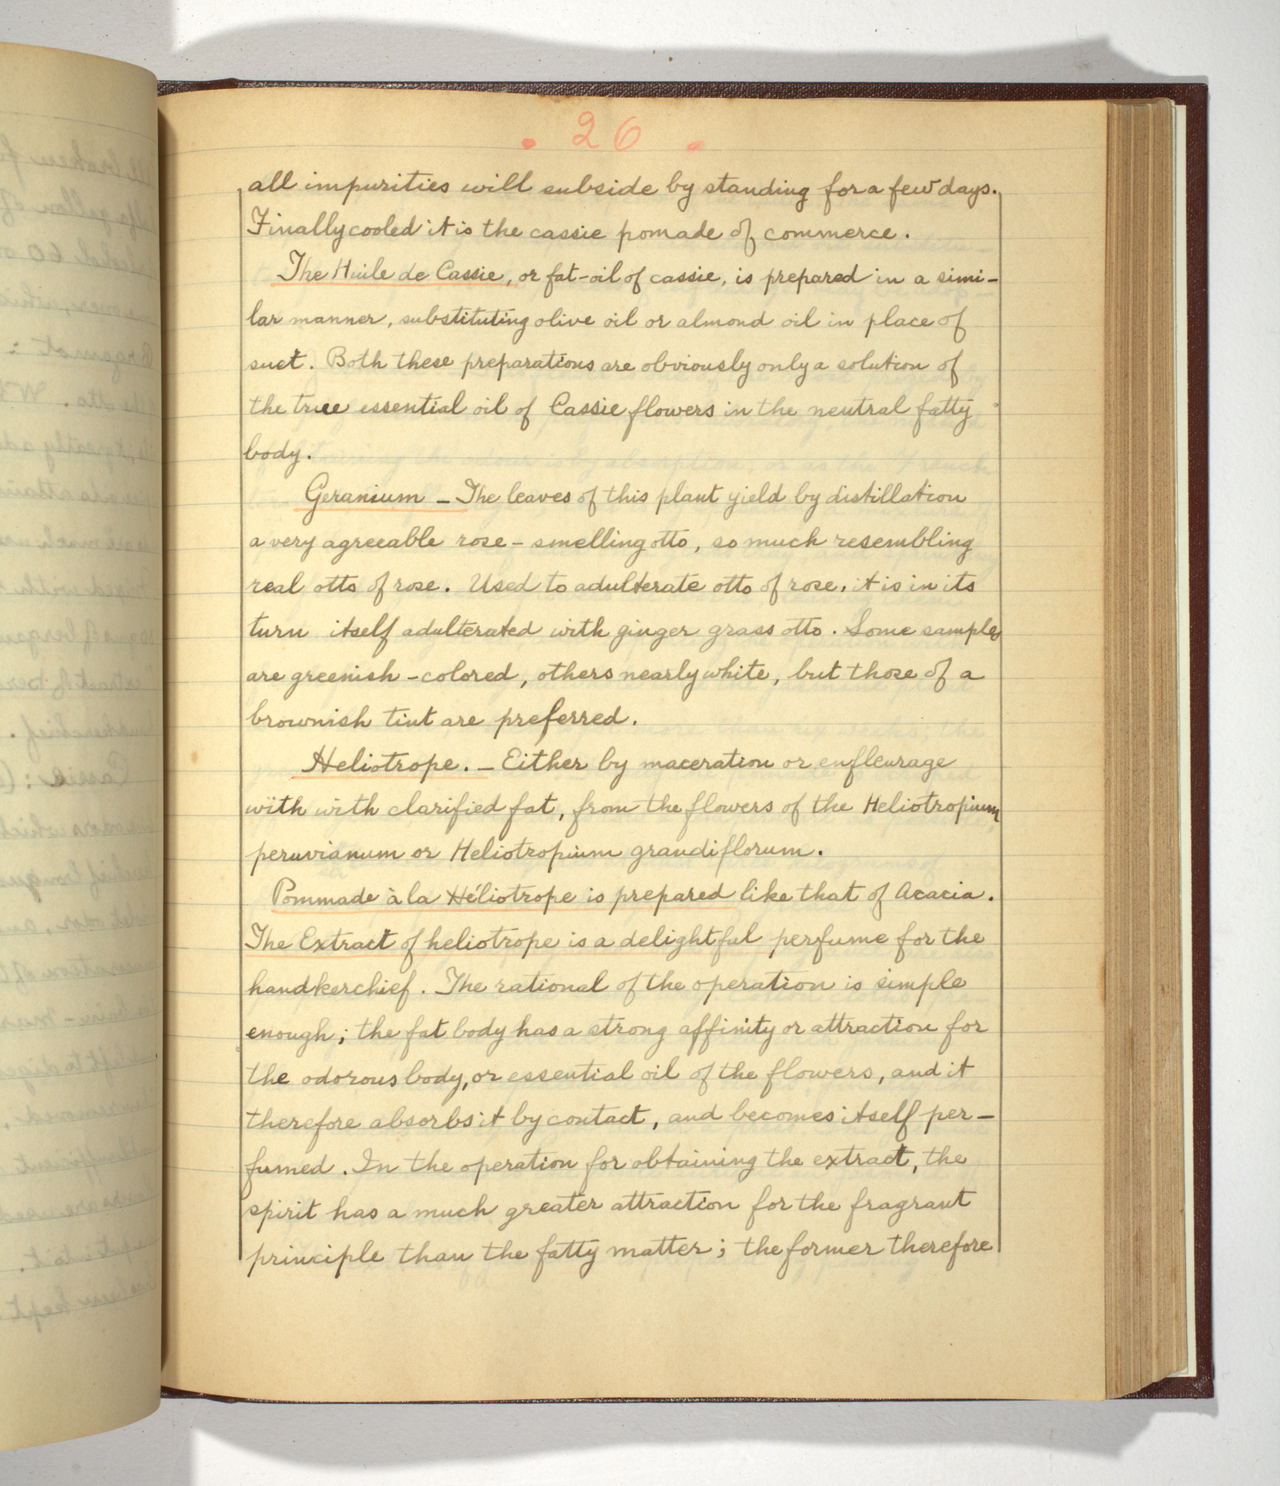 . 26 .
all impurities will subside by standing for a few days.
Finally cooled it is the cassie pomade of commerce.
The Huile de Cassie, or fat-oil of cassie, is prepared in a simi-
lar manner, substituting olive oil or almond oil in place of
suet. Both these preparations are obviously only a solution of
the true essential oil of Cassie flowers in the neutral fatty
body.
Geranium - The leaves of this plant yield by distillation
a very agreeable rose-smelling otto, so much resembling
real otto of rose. Used to adulterate otto of rose, it is in its
turn itself adulterated with ginger grass otto. Some samples
are greenish-colored, others nearly white, but those of a
brownish tint are preferred.
Heliotrope. - Either by maceration or enfleurage
with with clarified fat, from the flowers of the Heliotropium
peruvianum or Heliotropium grandiflorum.
Pommade à la Héliotrope is prepared like that of Acacia.
The Extract of heliotrope is a delightful perfume for the
handkerchief. The rational of the operation is simple
enough; the fat body has a strong affinity or attraction for
the odorous body, or essential oil of the flowers, and it
therefore absorbs it by contact, and becomes itself per-
fumed. In the operation for obtaining the extract, the
spirit has a much greater attraction for the fragrant
principle than the fatty matter; the former therefore